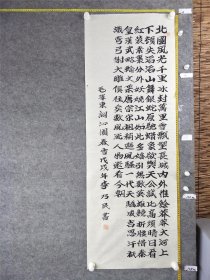 北國風光千里冰封萬里雪飄望長城内外惟餘莽莽大河上
下頓失滔滔山舞銀蛇原馳蠟象欲與天公試比高須晴日看
紅裝素裹分外妖嬈江山如此多嬌引無數英雄競折腰惜秦
皇漢武略輸文采唐宗宋祖稍遜風騷一代天驕成吉思汗祇
識彎弓射大雕俱往矣數風流人物還看今朝
毛澤東詞沁園春雪戊戌年 乃民書